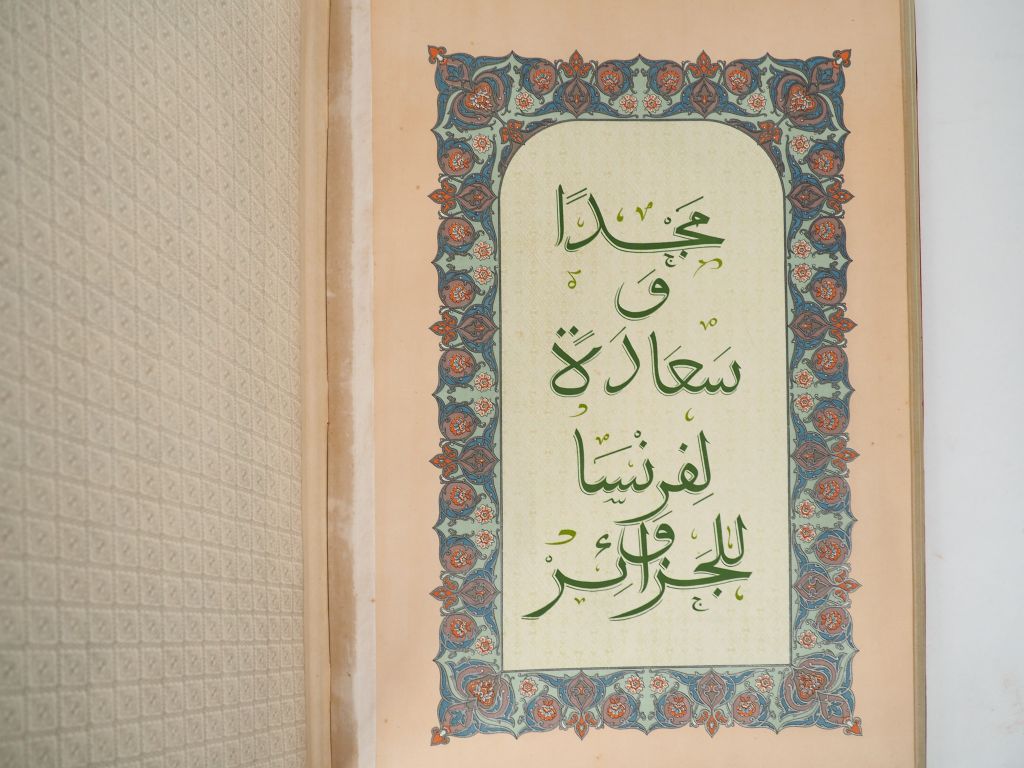 مَجْدًا
وَ
سَعَادَةً
لِفِرَنْسَا
وَ
لِلجَزَائِرْ